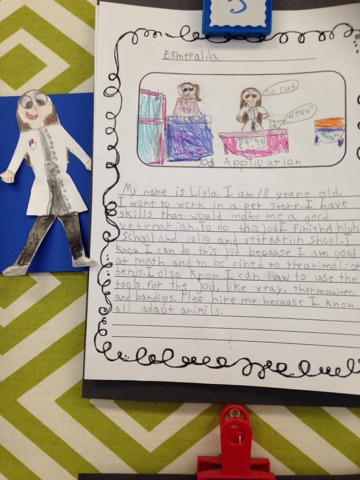 3
Esmeralda
so cut
meow
Job Application
My name is Livla. I am 18 years old.
I wont to work in a pet store. I have
skills that would make me a good
To do this job I finished high
school and colig and school. I
know I can do this job because I am good
at math and to be
I also know I can haw to use the
tools for the job, like xray, thermominer
and bandigs. Ples hire me because I know
all adapt animils.